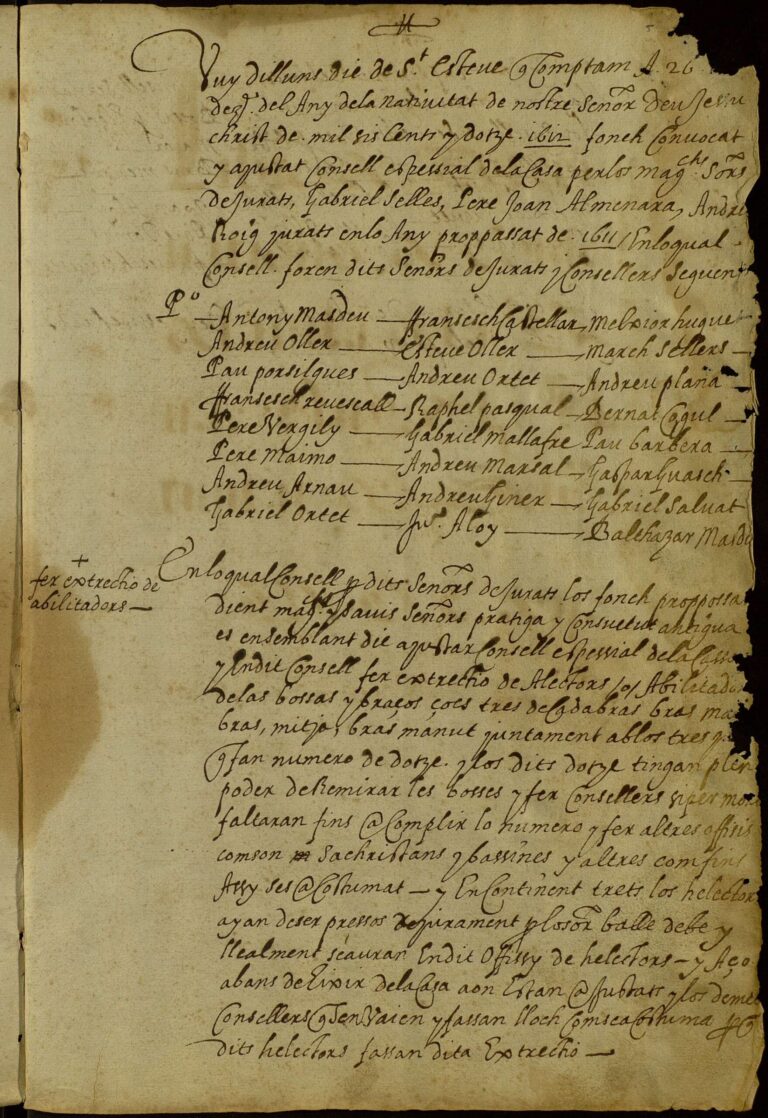 Vuy dilluns die de St. Esteve q Comptam A. 26
dezr. del Any dela nativitat de nostre señor deu Jessu
christ de mil sis Cents y dotze 1612 fonch Convocat
y ajustat Consell espessial dela Casa per los magchs. sors.
de Jurats, Gabriel Selles, Pere Joan Almenara, Andreu
Roig jurats en lo Any proppassat de 1611 / En lo qual
Consell foren dits Señors de Jurats y Consellers Seguent
Po Antony Masdeu — ffransesch Castellar, Melxior huguet
Andreu Oller — Esteve Oller — March Sellers —
Pau porsilques — Andreu Ortet — Andreu plana —
ffransesch revescall — Raphel pasqual — Bernat Cogul —
Pere Vergily — Gabriel mallafre Pau barbera —
Pere Maimo — Andreu Marsal — Gaspar Guasch —
Andreu Arnau — Andreu Giner — Gabriel Salvat
Gabriel Ortet — Jus. Aloy — Balthazar Masdeu
+
fer extrectio de
abilitadors —
En lo qual Consell p dits Señors de Jurats los fonch propposa
dient magchs. y savis Señors pratiga y Consuetut antigua
es en semblant die ajustar Consell espessial dela Cassa
y En dit Consell fer extrectio de Alectors /o/ Abilitado
delas bossas y braços çoes tres de Cada bras bras ma
bras, mitja, bras manut juntament ab los tres q
q fan numero de dotze. y los dits dotze tingan plen
poder de Remirar les bosses y fer Consellers si per mort
faltaran fins @ Complir lo numero y fer altres offisis
com son Sachristans y bassines y altres com fins
Assy ses @Costumat — y En Continent trets los helector
ayan de ser pressos de jurament p lo sor balle de be y
llealment se auran En dit Offissy de helectors — y Aço
abans de Eixir dela Casa aon Estan @justats y los deme
Consellers q sen Vaien y fassan lloch Com sea Costuma
dits helectors fassan dita Extrectio —